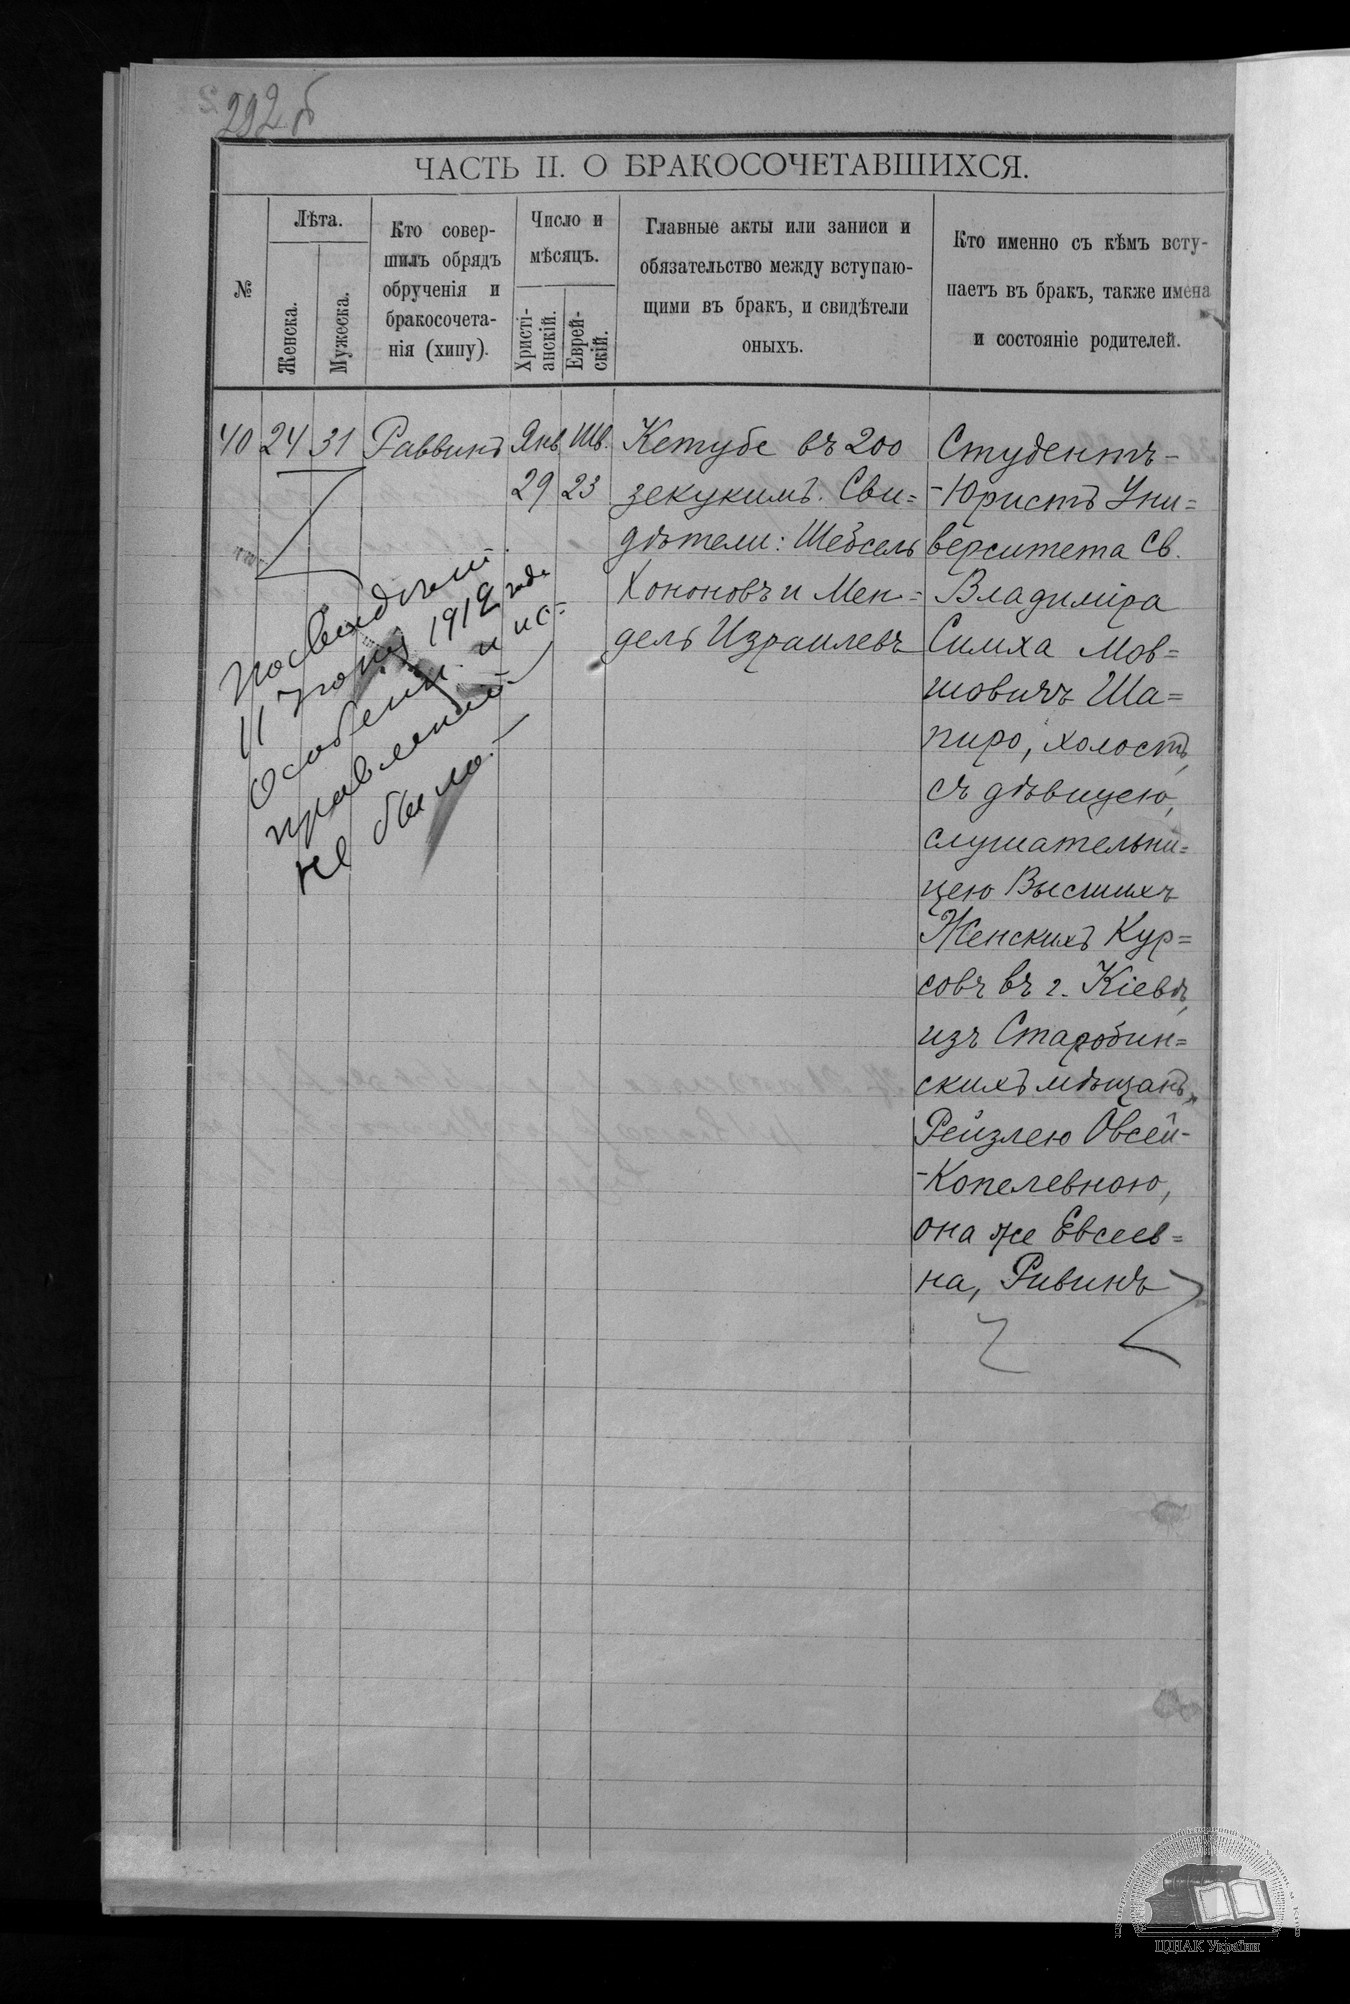 292 б
ЧАСТЬ II. О БРАКОСОЧЕТАВШИХСЯ.
№
Лѣта.
Женска.
Мужеска.
Кто совер-
шилъ обрядъ
обрученія и
бракосочета-
нія (хипу).
Число и
мѣсяцъ.
Христі-
анскій.
Еврей-
скій.
Главные акты или записи и
обязательство между вступаю-
щими въ бракъ, и свидѣтели
оныхъ.
Кто именно съ кѣмъ всту-
паетъ въ бракъ, также имена
и состояніе родителей.
40 24 31 Раввинъ Янв. Шв.
29 23
Кетубе въ 200
зекукимъ. Сви=
дѣтели: Шебсель
Хононовъ и Мен=
дель Израилевъ
Студентъ-
-Юристъ Уни=
верситета Св.
Владиміра
Симха Мов=
шовичъ Ша=
пиро, холостъ,
съ дѣвицею,
слушательни=
цею Высшихъ
Женскихъ Кур=
совъ въ г. Кіевѣ,
изъ Старобин=
скихъ мѣщанъ,
Рейзлею Овсей-
-Копелевною,
она же Евсеев=
на, Ривинъ
11 1912 года
Особен и ис=
правленій
не было.
ЦДІАК України